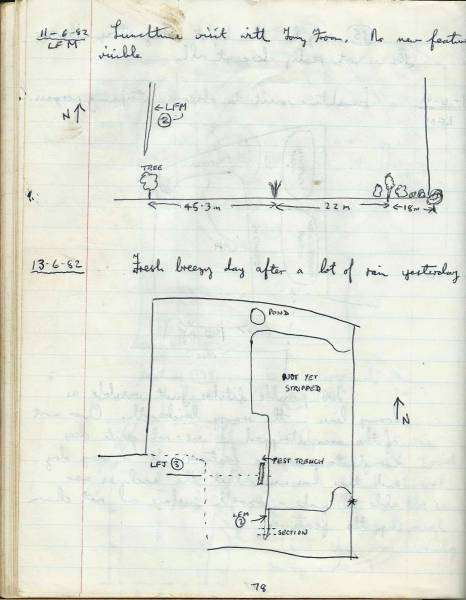 11-6-82 Lunchtime visit with Tony Foon. No new featur
LFM visible
N
LFM
2
TREE
45·3m 22m 18m
13-6-82 Fresh breezy day after a lot of rain yesterday
POND
NOT YET
STRIPPED
N
TEST TRENCH
LFJ 3
LFM
2
SECTION
78